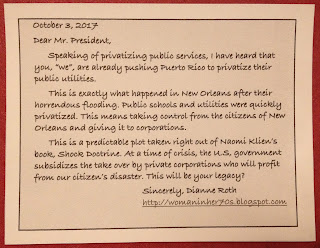 October 3, 2017
Dear Mr. President,
Speaking of privatizing public services, I have heard that
you, "we", are already pushing Puerto Rico to privatize their
public utilities.
This is exactly what happened in New Orleans after their
horrendous flooding. Public schools and utilities were quickly
privatized. This means taking control from the citizens of New
Orleans and giving it to corporations.
This is a predictable plot taken right out of Naomi Klien's
book, Shock Doctrine. At a time of crisis, the U.S, government
subsidizes the take over by private corporations who will profit
from our citizen's disaster. This will be your legacy?
Sincerely, Dianne Roth
http://womaninher70s.blogspot.com